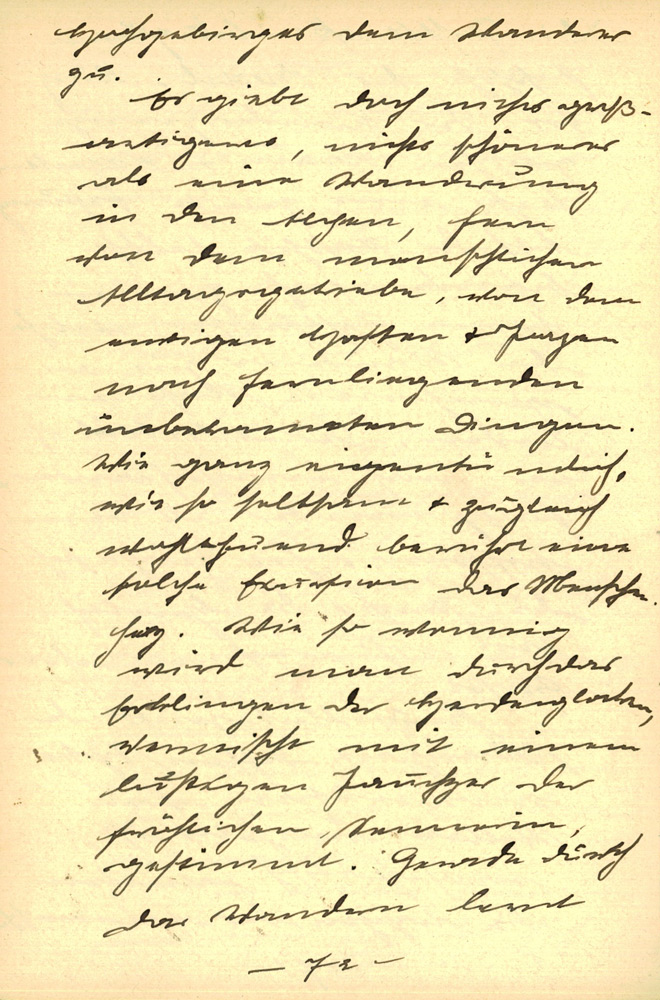 Hochgebirges dem Wanderer
zu.
Es giebt doch nichts groß-
artigeres, nichts schöneres
als eine Wanderung
in den Alpen, fern
von dem menschlichen
Alltagsgetriebe, von dem
ewigen Hasten & Jagen
nach fernliegenden
unbekannten Dingen.
Wie ganz eigentümlich,
wie so seltsam & zugleich
wohlthuend berührt eine
solche Excursion das Menschen
herz. Wie so wonnig
wird man durch das
Erklingen der Herdenglocken,
vermischt mit einem
lustigen Jauchzer der
fröhlichen Sennerin,
gestimmt. Gerade durch
das Wandern lernt
- 72 -